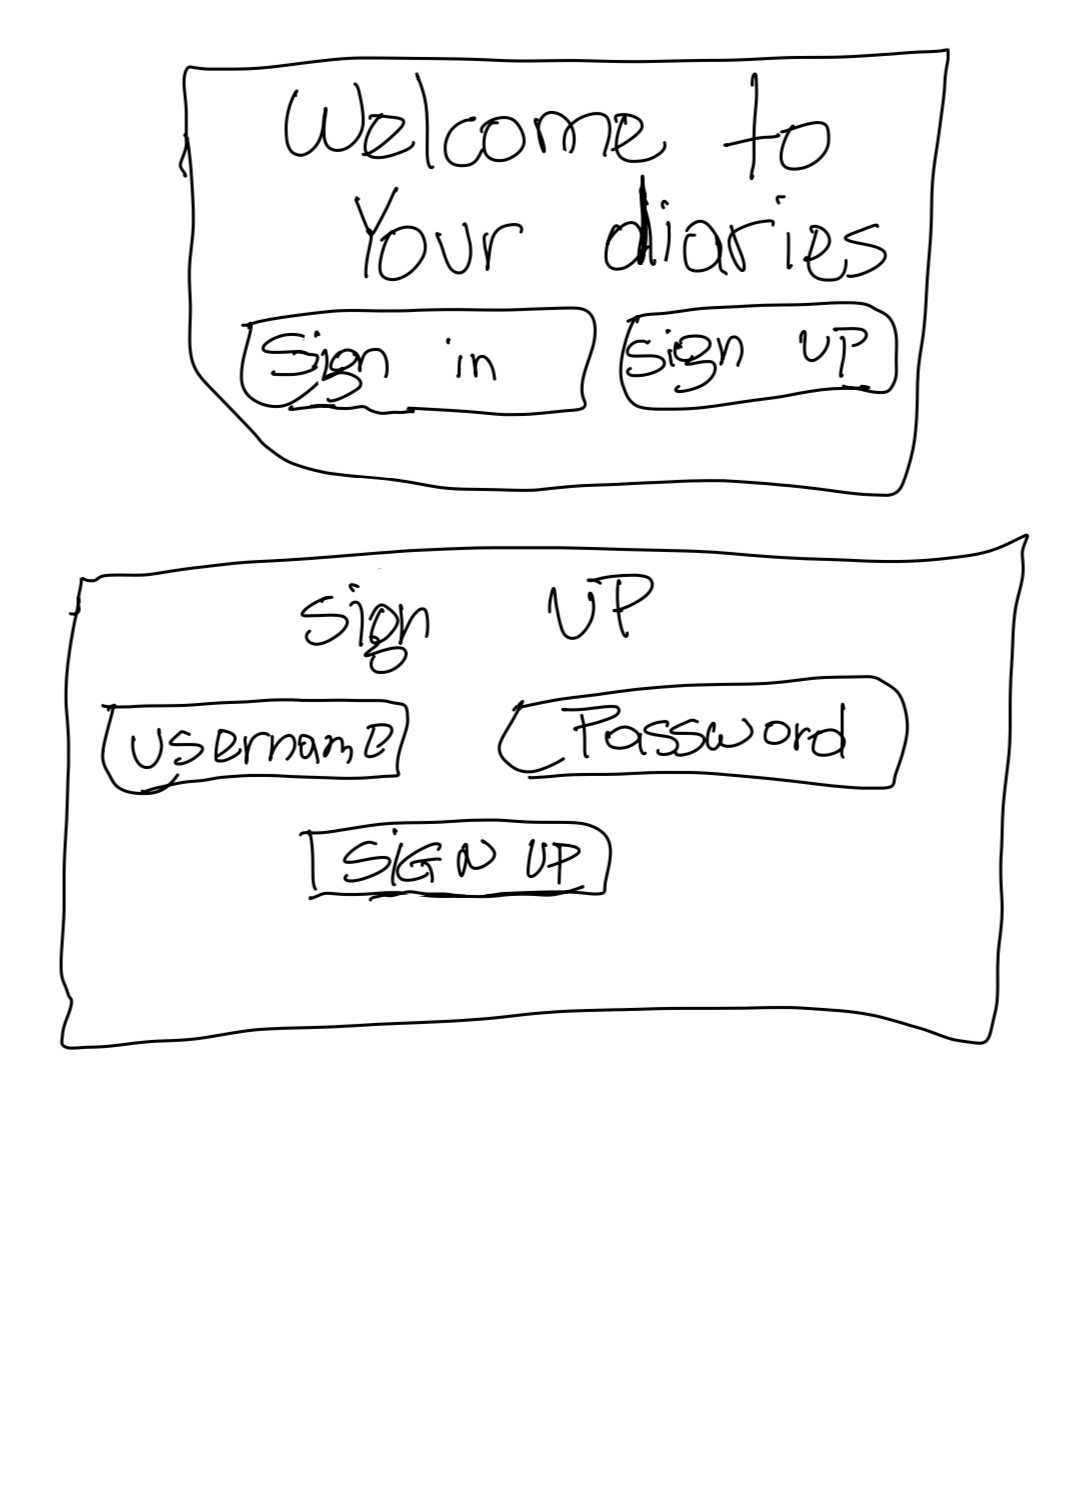 Welcome to
Your diaries
Sign in
Sign UP
Sign UP
Username
Password
SiGN UP